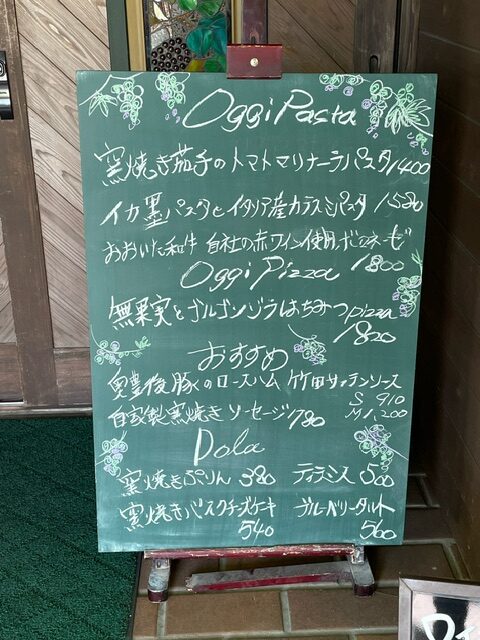 Oggi Pasta
窯焼き茄子のトマトマリナーラパスタ 1400
イカ墨パスタとイタリア産カラスミパスタ 1580
おおいた和牛 自社の赤ワイン使用ボロネーゼ
1800
Oggi Pizza
無栗実とゴルゴンゾラはちみつpizza
1820
おすすめ
奥豊後豚のロースハム 竹田サフランソース
S 910
M 1,200
自家製窯焼きソーセージ 1780
Dola
窯焼きぷりん 380 ティラミス 500
窯焼きバスクチーズケーキ ブルーベリータルト
540 560